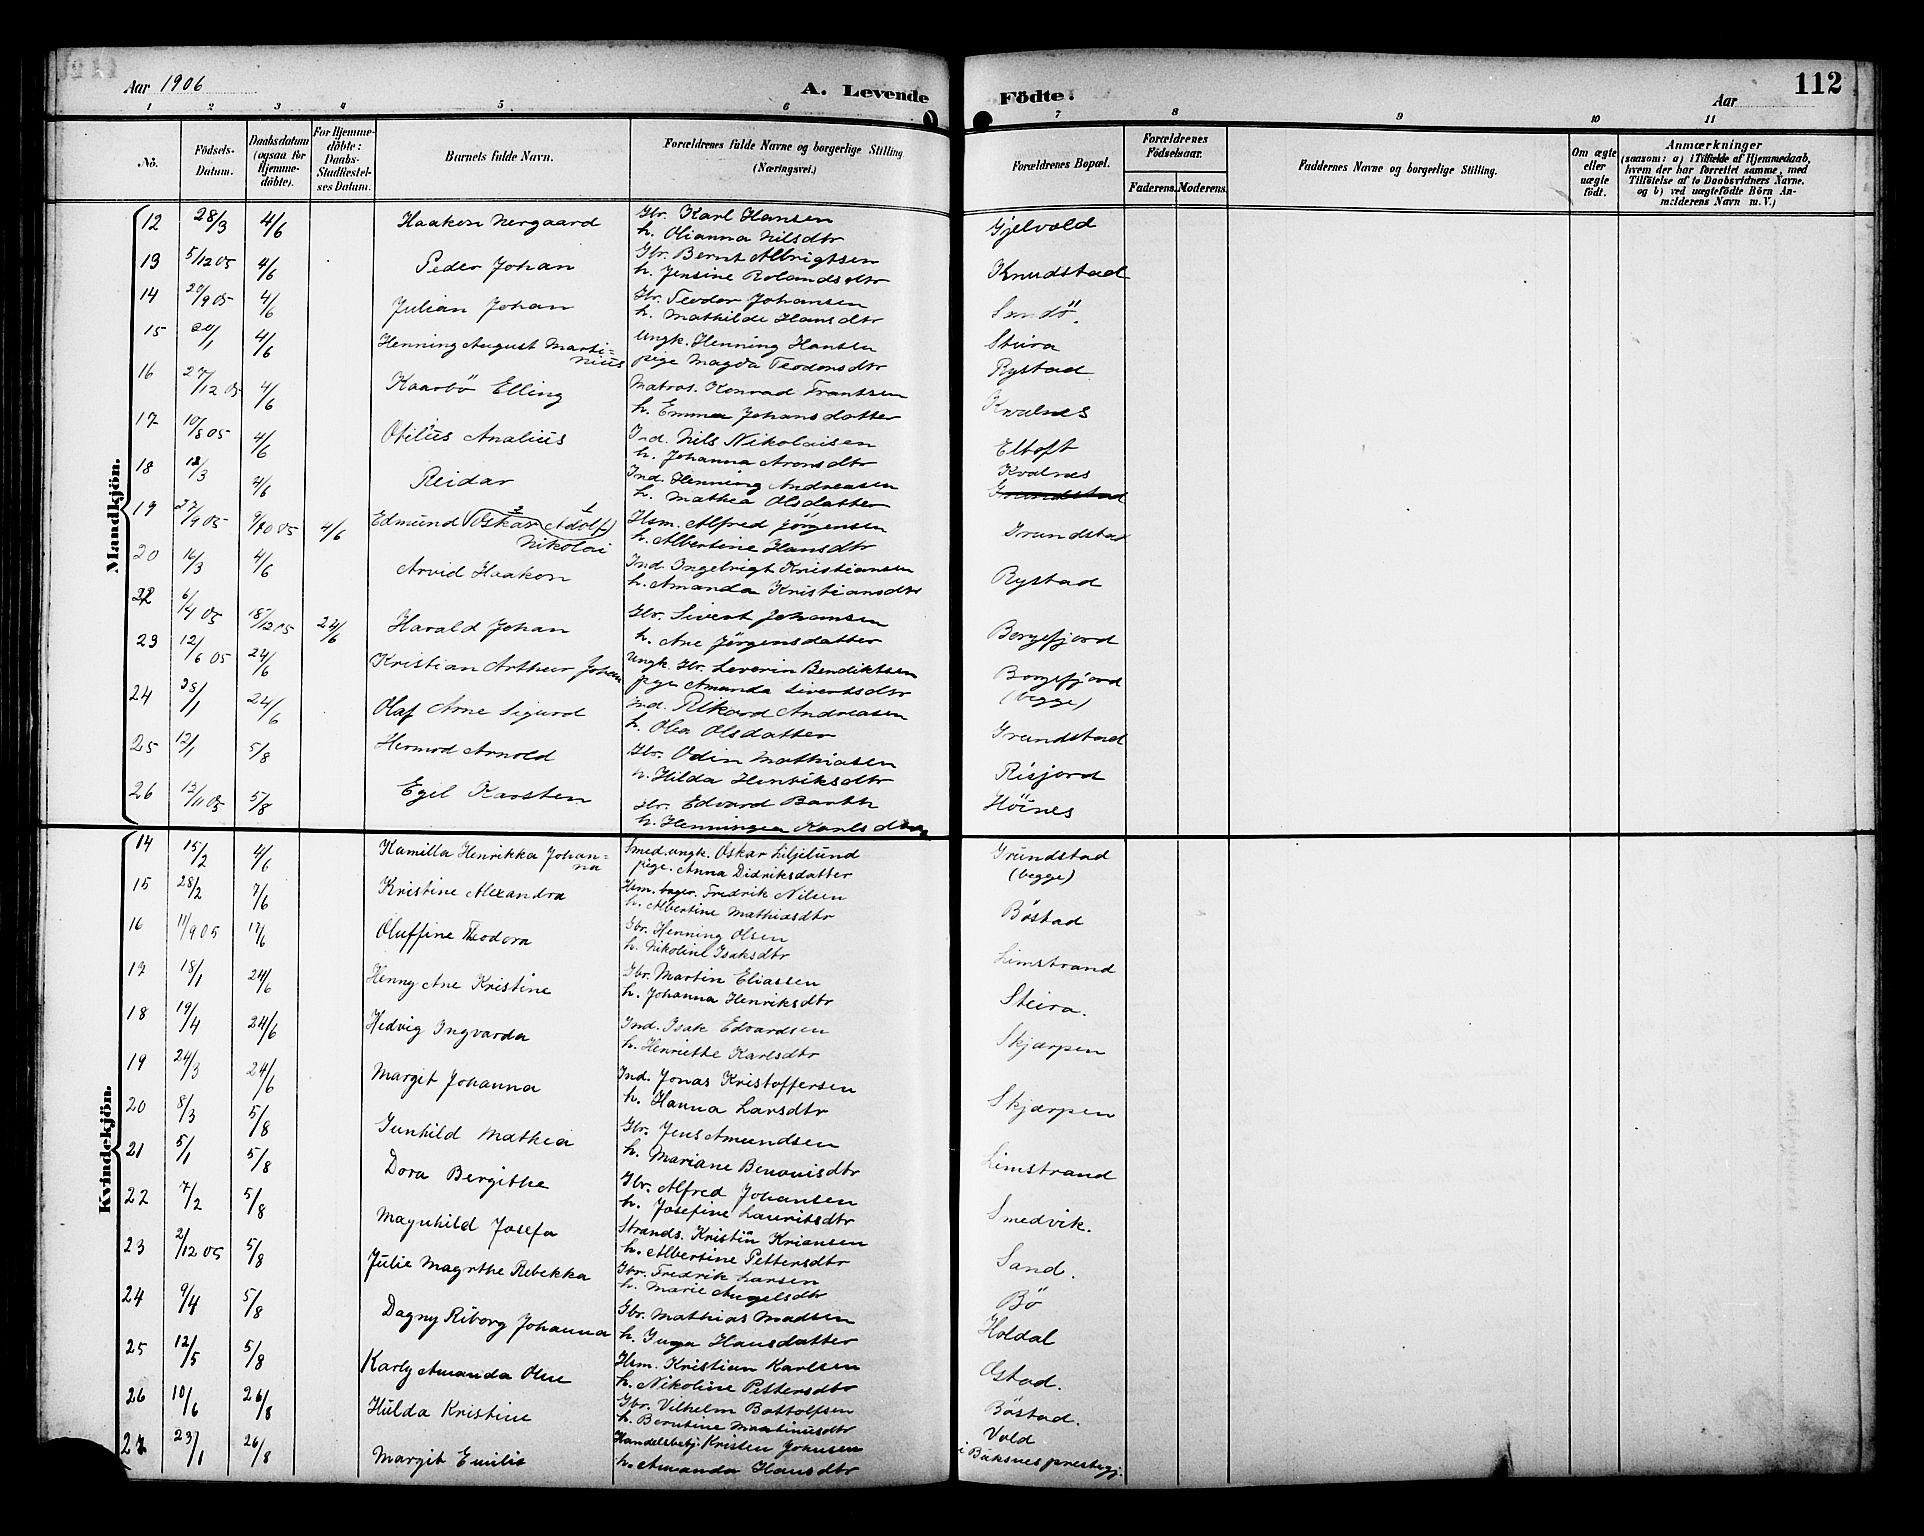 Aar 1906
A. Levende
Födte.
Aar
112
1 2 3 4 5 6 7 8 9 10 11
No.
Födsels-Datum.
Daabsdatum (ogsaa for Hjemme-döbte).
For Hjemme-döbte: Daabs-Stadfæstel-ses Datum.
Barnets fulde Navn.
Forældrenes fulde Navne og borgerlige Stilling (Næringsvei.)
Forældrenes Bopæl.
Forældrenes Födselsaar.
Faderens. Moderens.
Faddernes Navne og borgerlige Stilling.
Om ægte eller uægte födt.
Anmærkninger
(saasom: a) i Tilfælde af Hjemmedaab,
hvem der har forrettet samme, med
Tilföielse af to Daabsvidners Navne,
og b) ved uægtefödte Börn An-
mælderens Navn m. V.)
Mandkjön.
12 28/3 4/6 Haakon Nergaard Gbr. Karl Hansen Gjelvold
h. Olianna Nilsdtr
13 5/12 05 4/6 Peder Johan Gbr. Bernt Albrigtsen Knudstad
h. Jensine Rolandsdtr
14 20/9 05 4/6 Julian Johan Gbr. Teodor Johansen Sandö.
h. Mathilde Hansdtr
15 20/1 4/6 Henning August Marti- Ungk. Henning Hansen Steira
nius pige Magda Teodorsdtr Rystad
16 27/12 05 4/6 Kaarbö Elling Matros. Konrad Frantsen Kvalnes
h. Emma Johansdatter
17 10/8 05 4/6 Otilius Analius Ind. Nils Nikolaisen Eltoft
h. Johanna Aronsdtr
18 18/3 4/6 Reidar Ind. Henning Andreasen Kvalnes
h. Mathea Olsdatter Grundstad
19 27/9 05 9/10 05 4/6 Edmund (Oskar Adolf) Hsm. Alfred Jörgensen Grundstad
Nikolai h. Albertine Hansdtr
20 16/3 4/6 Arvid Haakon Ind Ingebrigt Kristiansen Rystad
h. Amanda Kristiansdtr
22 6/4 05 18/12 05 24/6 Harald Johan Gbr. Sivert Johansen Borgefjord
h. Ane Jörgensdatter
23 12/6 05 24/6 Kristian Arthur Johan Ungk. Gbr. Severin Bendiktsen Borgefjord
pige Amanda Sivertsdtr (begge)
24 25/1 24/6 Olaf Arne Sigurd Ind. Rikard Andreasen Grundstad
h. Olea Olsdatter
25 12/1 5/8 Hermod Arnold Gbr. Odin Mathiasen Risjord
h. Hilda Henriksdtr
26 12/11 05 5/8 Egil Karsten Gbr. Edvard Barth Höines
h. Henningea Karlsdtr
Kvindekjön.
14 15/2 4/6 Kamilla Henrikka Johan- Smed. ungk. Oskar Liljelund Grundstad
na pige. Anna Didriksdatter (begge)
15 28/2 7/6 Kristine Alexandra Hsm. Fredrik Nilsen Böstad
h. Albertine Mathiasdtr
16 11/9 05 17/6 Oluffine Theodora Gbr. Henning Olsen Limstrand
h. Nikoline Isaksdtr
17 18/1 24/6 Henny Ane Kristine Gbr. Martin Eliassen Steira.
h. Johanna Henriksdtr
18 19/4 24/6 Hedvig Ingvarda Ind. Isak Edvardsen Skjærpen
h. Henriette Karlsdtr
19 24/3 24/6 Margit Johanna Ind. Jonas Kristoffersen Skjærpen
h. Hanna Larsdtr
20 8/3 5/8 Gunhild Mathea Gbr. Jens Amundsen Limstrand
h. Mariane Benonisdtr
21 5/1 5/8 Dora Bergithe Gbr. Alfred Johansen Smedvik.
h. Josefine Lauritsdtr
22 7/2 5/8 Magnhild Josefa Strands. Kristin Kriansen Sand.
h. Albertine Pettersdtr
23 2/12 05 5/8 Julie Magrthe Rebekka Gbr. Fredrik Larsen Bö
h. Marie Angelsdtr
24 9/4 5/8 Dagny Riborg Johanna Gbr. Mathias Madsen Holdal
h. Inga Hansdatter
25 12/5 5/8 Karly Amanda Oline Hsm. Kristian Karlsen Østad.
h. Nikoline Pettersdtr
26 10/6 26/8 Hulda Kristine Gbr. Vilhelm Bottolfsen Böstad.
h. Berntine Martinusdtr
27 23/1 26/8 Margit Emilie Handelsbetj. Kristen Johnsen Vold
h. Amanda Hansdtr i Buksnes prestegj.